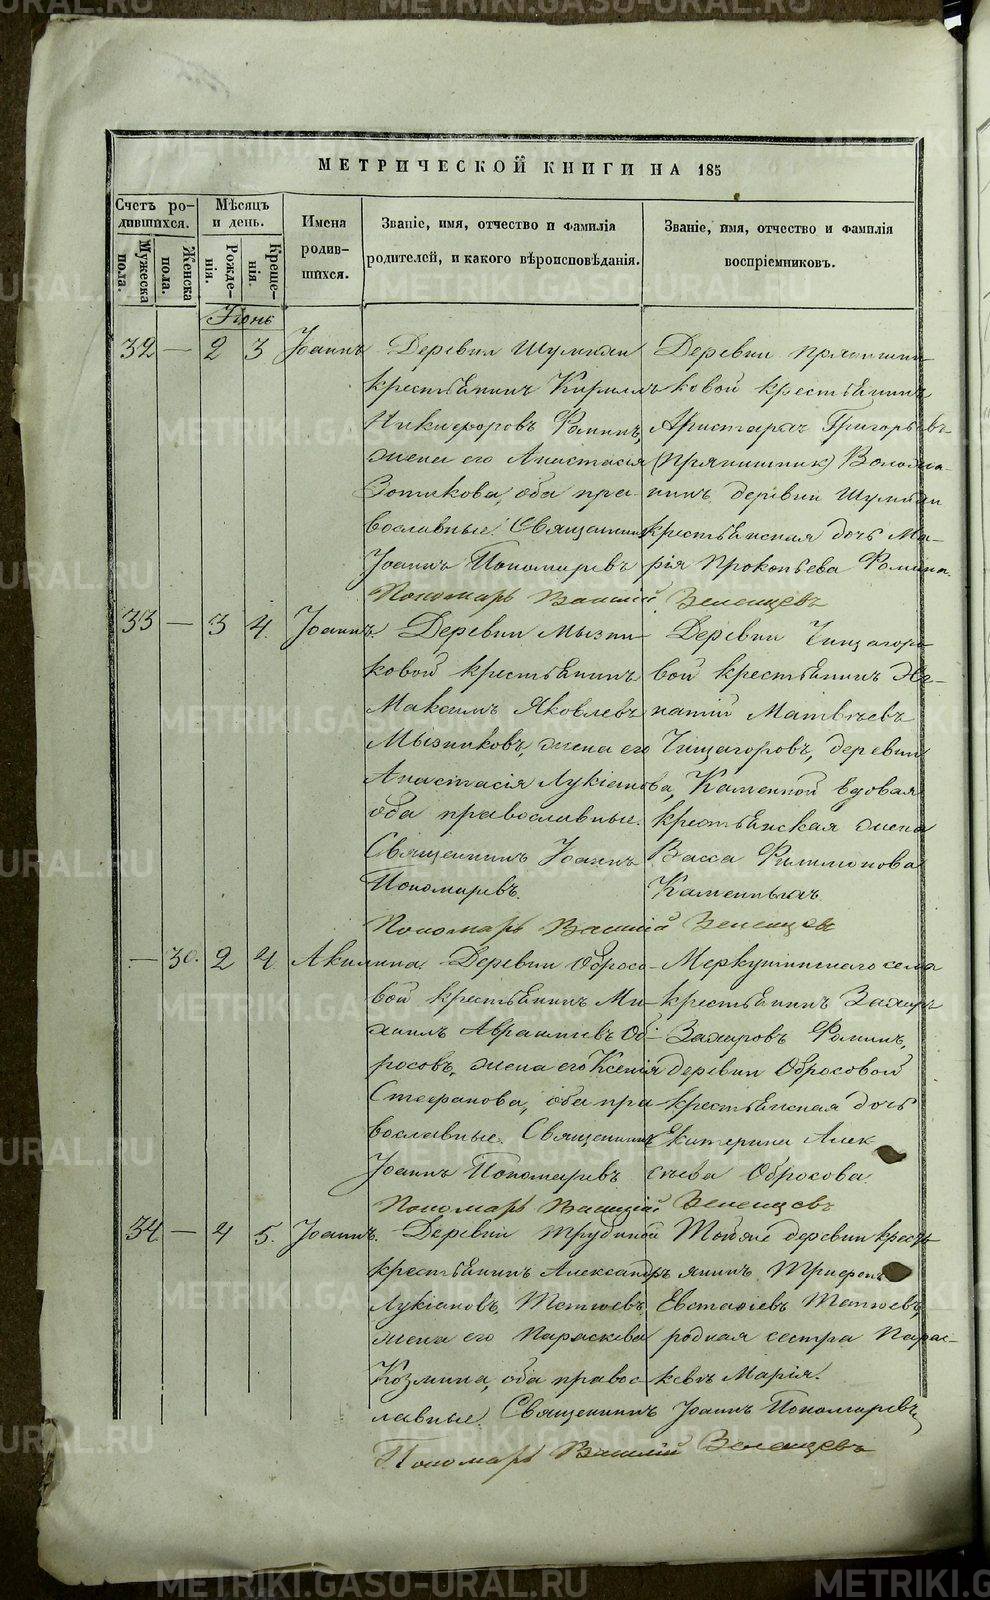 МЕТРИЧЕСКОЙ КНИГИ НА 185
Счетъ ро-
дившихся.
Мужеска
пола.
Женска
пола.
Мѣсяцъ
и день.
Рожде-
нія.
Креще-
нія.
Имена
родив-
шихся.
Званіе, имя, отчество и фамилія
родителей, и какого вѣроисповѣданія.
Званіе, имя, отчество и фамилія
воспріемниковъ.
Іюнь
32 — 2 3 Іоаннъ
Деревни Шумков
крестьянинъ Кириллъ
Никифоровъ Фоминъ,
жена его Анастасія
Зотикова, оба пра-
вославные. Священникъ
Іоаннъ Пономаревъ
Деревни Прянишни
ковой крестьянинъ
Аристархъ Григорьевъ
(Прянишник)
нинъ, деревни Шумков
крестьянская дочь Ма-
рія Прокопьева Фомина.
Пономарь Василій Зеленцевъ
33 — 3 4. Іоаннъ.
Деревни Мызни-
ковой крестьянинъ
Максимъ Яковлевъ
Мызниковъ, жена его
Анастасія Лукіанова,
оба православные.
Священникъ Іоаннъ
Пономаревъ.
Деревни Чищагоро
вой крестьянинъ Иг-
натій Матвѣевъ
Чищагоровъ, деревни
Каменной вдовая
крестьянская жена
Васса Филимонова
Каменныхъ
Пономарь Василій Зеленцевъ
— 30. 2 4. Акилина.
Деревни Обросо-
вой крестьянинъ Ми-
хаилъ Авраамiевъ Об-
росовъ, жена его Ксенія
Стефанова, оба пра
вославные. Священникъ
Іоаннъ Пономаревъ
Меркушинскаго села
крестьянинъ Захаръ
Захаровъ Фоминъ,
деревни Обросовой
крестьянская дочь
Екатерина Алек
сѣева Обросова
Пономарь Василій Зеленцевъ
34 — 4 5. Іоаннъ.
Деревни Трубиной
крестьянинъ Александръ
Лукіановъ Татаевъ,
жена его Параскева
Козмина, оба правос-
лавные. Священникъ Іоаннъ Пономаревъ
Той же деревни кресть
янинъ Трифонъ
Евстафіевъ Татаевъ,
родная сестра Парас-
кевѣ Марія.
Пономарь Василій Зеленцевъ
METRIKI.GASO-URAL.RU